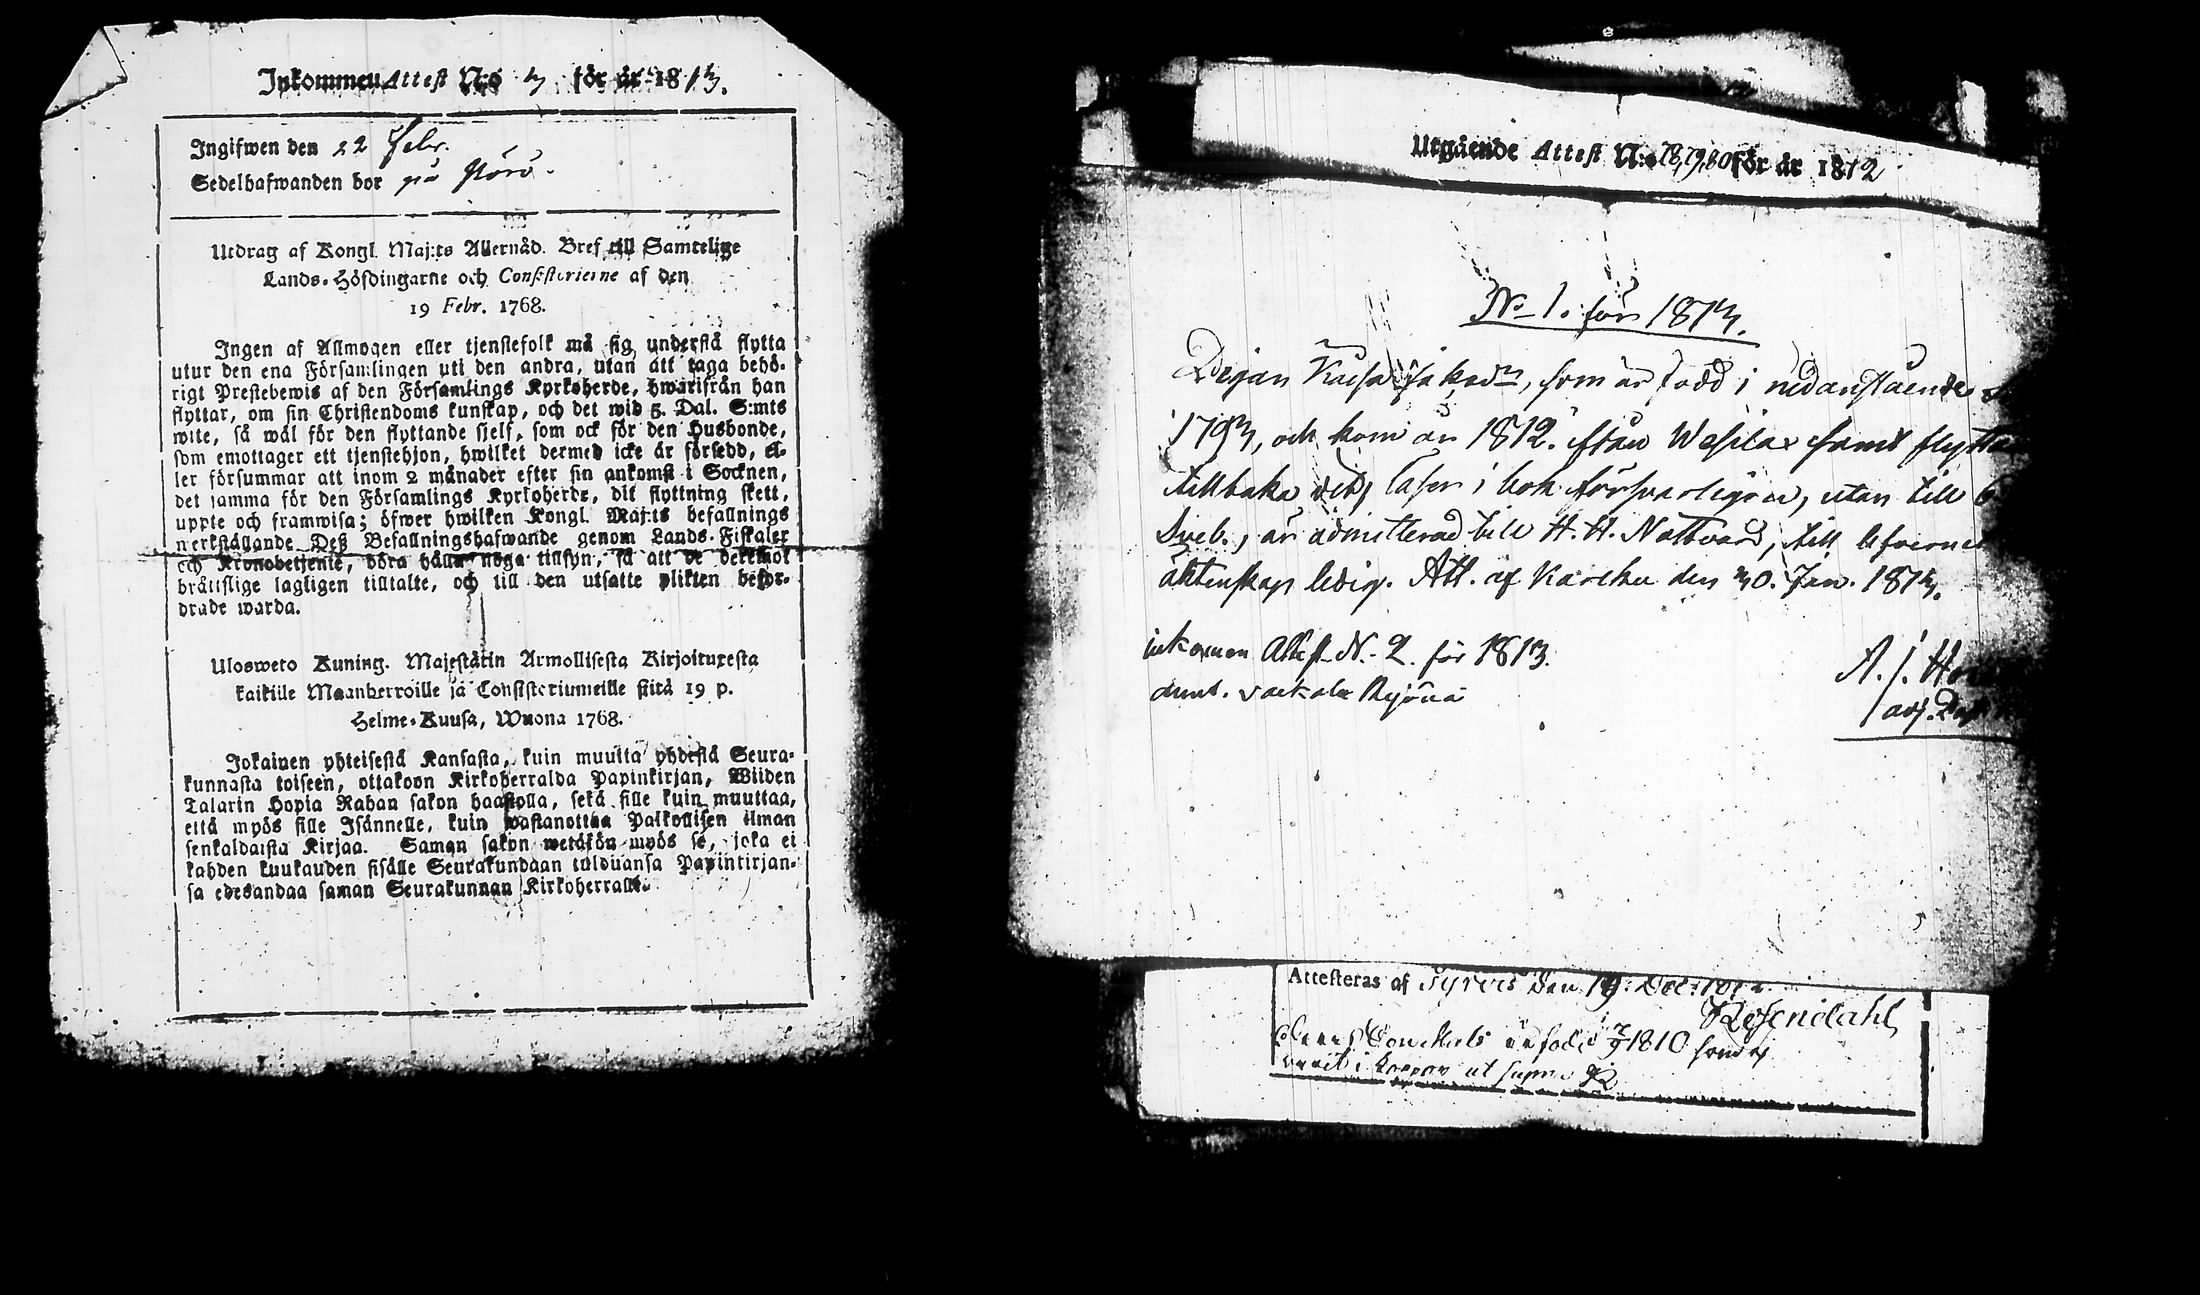 Inkommen Attest N:o 3 för år 1813.
Ingifwen den 22 Febr.
Sedelhafwanden bor på
Utdrag af Kongl. Maj:ts Allernåd. Bref till Samtelige
Lands-Höfdingarne och Consistorierne af den
19 Febr. 1768.
Ingen af Allmogen eller tjenstefolk må sig understå flytta
utur den ena Församlingen uti den andra, utan att taga behö-
rigt Prestebewis af den Församlings Kyrkoherde, hwarifrån han
flyttar, om sin Christendoms kunskap, och det wid 5. Dal. S:mts
wite, så wäl för den flyttande sjelf, som ock för den Husbonde,
som emottager ett tjenstehjon, hwilket dermed icke är försedd, el-
ler försummar att inom 2 månader efter sin ankomst i Socknen,
det samma för den Församlings Kyrkoherde, dit flyttning skett,
uppte och framwisa; öfwer hwilken Kongl. Maj:ts befallnings
werkställande Deß Befallningshafwande genom Lands-Fiskaler
och Kronobetjente, böra hålla noga tillsyn, så att de deremot
bråttslige lagligen tilltalte, och till den utsatte plikten befor-
drade warda.
Ulosweto Kuning. Majestätin Armollisesta Kirjoituxesta
kaikille Maanherroille ja Consistoriumeille siitä 19 p.
Helme-Kuusa, Wuona 1768.
Jokainen yhteisestä Kansasta, kuin muutta yhdestä Seura-
kunnasta toiseen, ottakoon Kirkoherralda Papinkirjan, Wiiden
Talarin Hopia Rahan sakon haastolla, sekä sille kuin muuttaa,
että myös sille Isännelle, kuin wastanottaa Palkollisen ilman
senkaldaista Kirjaa. Saman sakon wetäkön myös se, joka ei
kahden kuukauden sisälle Seurakundaan tulduansa Papinkirjan-
sa edesandaa saman Seurakunnan Kirkoherralle.
Utgående Attest N:o 78,79,80 för år 1812
No 1. för 1813.
Pigan Kaisa Jakobsdr, som är född i nedanstående
1793, och kom år 1812 ifrån Wesilax samt flyttar
tillbaka dit, läser i bok försvarligen, utan till
Sveb., är admitterad till H. H. Nattvard, till lefvernet
äktenskap ledig. Att. af Karkku den 30. Jan. 1813.
inkommen Attest N. 2. för 1813.
A. J.
adj.
Attesteras af Tyrvis den 19 Dec. 1812.
Rosendahl
är född 2/9 1810 som ej
varit i koppor ut supra R